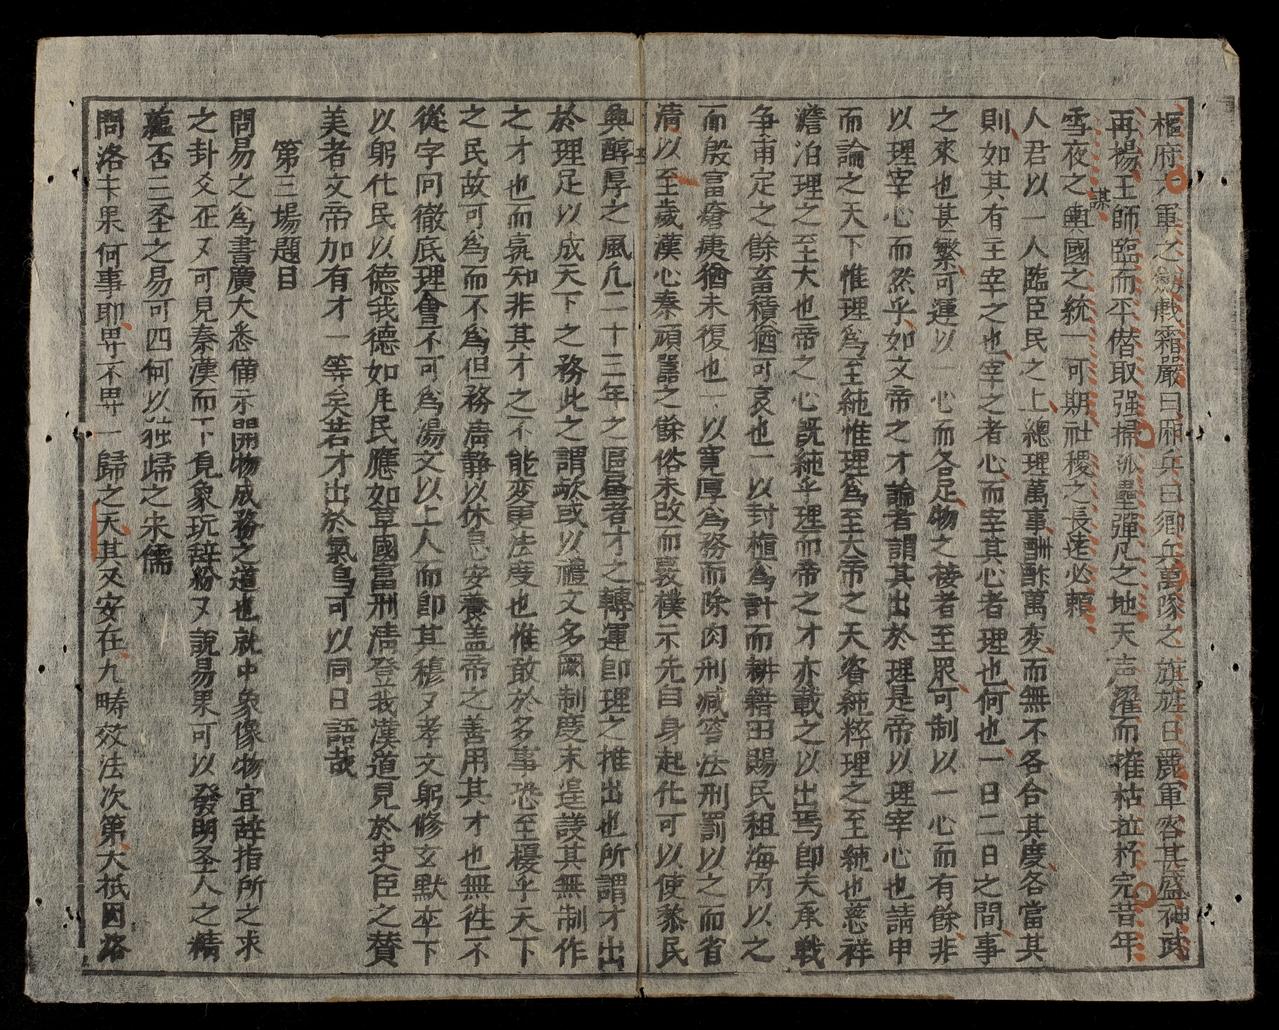 樞府六軍之
戟霜嚴曰廂兵曰鄉兵萬隊之旌旌日麗軍容甚盛神武
再揚王師臨而平僣取强掃派壘彈凡之地天声濯而摧枯拉朽完昔年
雪夜之輿國之統一可期社稷之長遠必賴
謀
人君以一人臨臣民之上總理萬事酬酢萬変而無不各合其度各當其
則如其有主宰之也宰之者心而宰其心者理也何也一日二日之間事
之來也甚繁可運以一心而各足物之棲者至眾可制以一心而有餘非
以理宰心而然乎如文帝之才論者謂其出於理是帝以理宰心也請申
而論之天下惟理爲至純惟理爲至大帝之天資純粹理之至純也慈祥
澹泊理之至大也帝之心既純乎理而帝之才亦載之以出焉卽夫承戰
争甫定之餘畜積猶可哀也一以封樁爲計而耕籍田賜民租海内以之
而殷富瘡痍猶未復也一以寬厚爲務而除肉刑減笞法刑罰以之而省
清以至歲漢心秦頑囂之餘俗未改而敦樸示先自身起化可以使蒸民
興醇厚之風凡二十三年之區畫者才之轉運卽理之推出也所謂才出
於理足以成天下之務此之謂歟或以禮文多闕制度未遑議其無制作
之才也而孰知非其才之不能変更法度也惟敢於多事恐至擾乎天下
之民故可爲而不爲但務淸静以休息安養盖帝之善用其才也無徃不
從字问徹底理會不可爲湯文以上人而卽其穆又孝文躬修玄默率下
以躬化民以德我德如庄民應如草國富刑淸登我漢道見於史臣之賛
美者文帝加有才一等矣若才出於氣烏可以同日語哉
第三場題目
問易之爲書廣大悉備示開物成務之道也就中象像物宜辞指所之求
之卦爻疋又可見秦漢而下覓象玩辞紛又說易果可以發明圣人之精
蘊否三圣之易可四何以独歸之宋儒
問洛卞果何事耶畀不畀一歸之天其又安在九疇效法次第大祇因洛